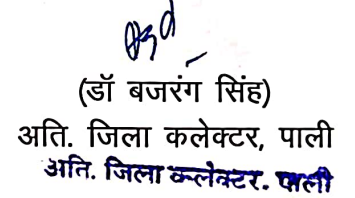 (डॉ बजरंग सिंह)
अति. जिला कलेक्टर, पाली
अति. जिला कलेक्टर. पाली